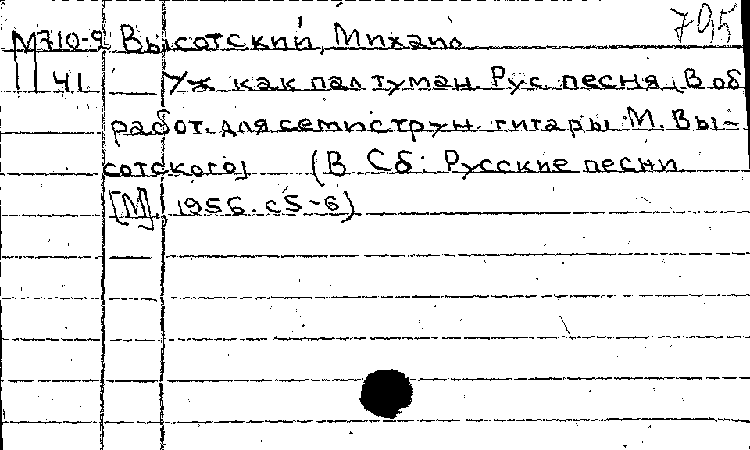 795
М710-9 Высотский, Михаил
П 41 Уж как пал туман. Рус. песня. [В об
работ. для семиструн. гитары М. Вы-
сотского] (В Сб: Русские песни
[М]. 1956. с 5-6)